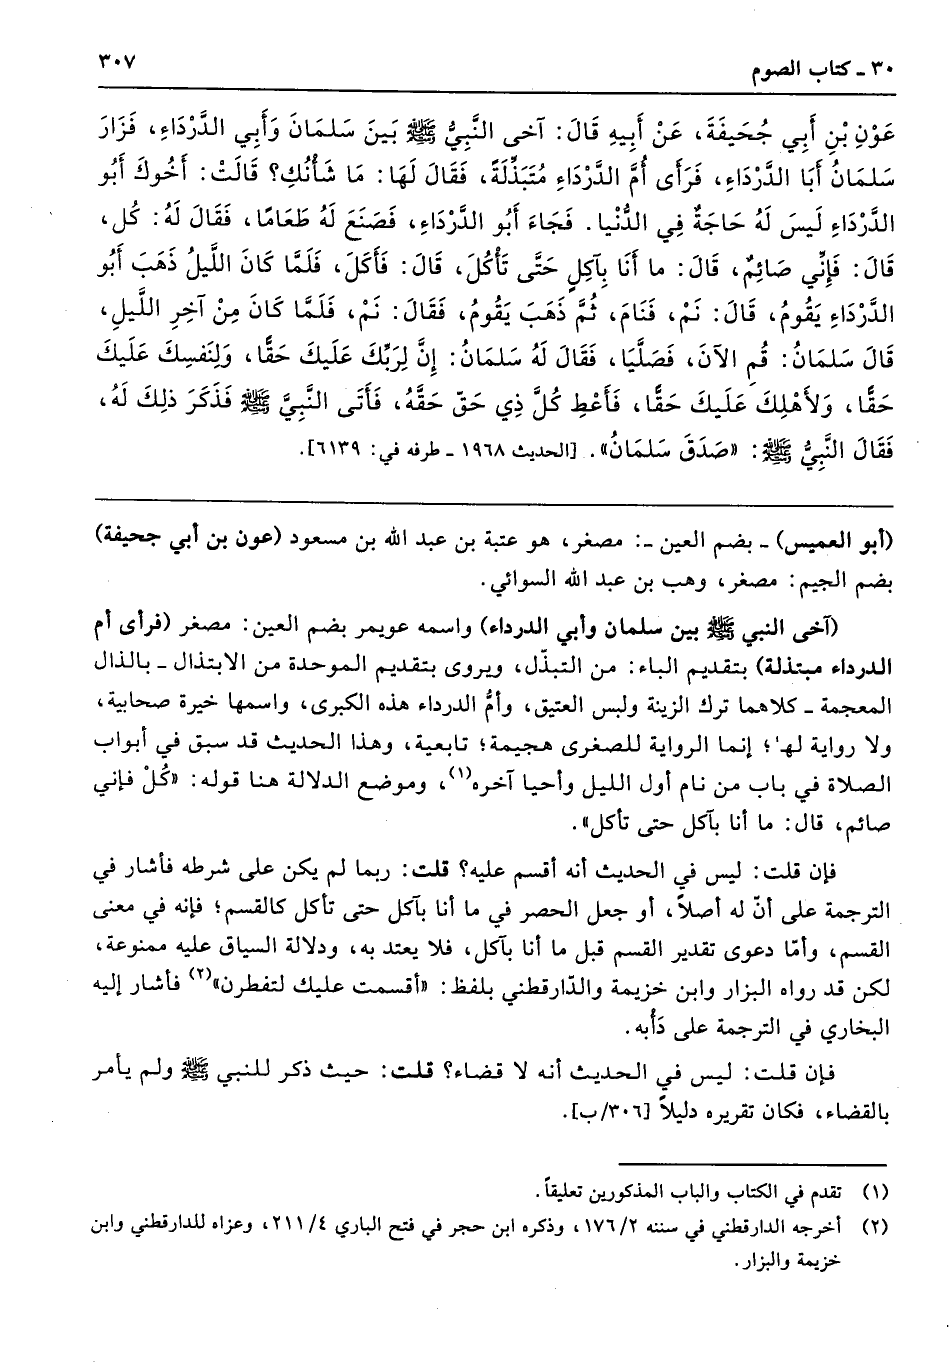 ٣٠ ـ كتاب الصوم
٣٠٧
عَوْنِ بْنِ أَبِي جُحَيفَةَ، عَنْ أَبِيهِ قَالَ: آخى النَّبِيُّ ﷺ بَينَ سَلمَانَ وَأَبِي الدَّرْدَاءِ، فَزَارَ
سَلمَانُ أَبَا الدَّرْدَاءِ، فَرَأَى أُمَّ الدَّرْدَاءِ مُتَبَذِّلَةً، فَقَالَ لَهَا: مَا شَأْنُكِ؟ قَالَتْ: أَخُوكَ أَبُو
الدَّرْدَاءِ لَيسَ لَهُ حَاجَةٌ فِي الدُّنْيا. فَجَاءَ أَبُو الدَّرْدَاءِ، فَصَنَعَ لَهُ طَعَامًا، فَقَالَ لَهُ: كُل،
قَالَ: فَإِنِّي صَائِمٌ، قَالَ: ما أَنَا بِآكِلٍ حَتَّى تَأْكُلَ، قَالَ: فَأَكَلَ، فَلَمَّا كَانَ اللَّيلُ ذَهَبَ أَبُو
الدَّرْدَاءِ يَقُومُ، قَالَ: نَمْ، فَنَامَ، ثُمَّ ذَهَبَ يَقُومُ، فَقَالَ: نَمْ، فَلَمَّا كَانَ مِنْ آخِرِ اللَّيلِ،
قَالَ سَلمَانُ: قُمِ الآنَ، فَصَلَّيَا، فَقَالَ لَهُ سَلمَانُ: إِنَّ لِرَبِّكَ عَلَيكَ حَقًّا، وَلِنَفسِكَ عَلَيكَ
حَقًّا، وَلأَهْلِكَ عَلَيكَ حَقًّا، فَأَعْطِ كُلَّ ذِي حَقّ حَقَّهُ، فَأَتَى النَّبِيَّ ﷺ فَذَكَرَ ذلِكَ لَهُ،
فَقَالَ النَّبِيُّ ﷺ: «صَدَقَ سَلمَانُ». [الحديث ١٩٦٨ ـ طرفه في: ٦١٣٩].
(أبو العميس) ـ بضم العين ـ: مصغر، هو عتبة بن عبد الله بن مسعود (عون بن أبي جحيفة)
بضم الجيم: مصغر، وهب بن عبد الله السوائي.
(آخى النبي ﷺ بين سلمان وأبي الدرداء) واسمه عويمر بضم العين: مصغر (فرأى أم
الدرداء مبتذلة) بتقديم الباء: من التبذّل، ويروى بتقديم الموحدة من الابتذال ـ بالذال
المعجمة ـ كلاهما ترك الزينة ولبس العتيق، وأمُّ الدرداء هذه الكبرى، واسمها خيرة صحابية،
ولا رواية لها؛ إنما الرواية للصغرى هجيمة؛ تابعية، وهذا الحديث قد سبق في أبواب
الصلاة في باب من نام أول الليل وأحيا آخره(١)، وموضع الدلالة هنا قوله: «كُلْ فإني
صائم، قال: ما أنا بآكل حتى تأكل».
فإن قلت: ليس في الحديث أنه أقسم عليه؟ قلت: ربما لم يكن على شرطه فأشار في
الترجمة على أنّ له أصلاً، أو جعل الحصر في ما أنا بآكل حتى تأكل كالقسم؛ فإنه في معنى
القسم، وأمّا دعوى تقدير القسم قبل ما أنا بآكل، فلا يعتد به، ودلالة السياق عليه ممنوعة،
لكن قد رواه البزار وابن خزيمة والدّارقطني بلفظ: «أقسمت عليك لتفطرن»(٢) فأشار إليه
البخاري في الترجمة على دَأْبه.
فإن قلت: ليس في الحديث أنه لا قضاء؟ قلت: حيث ذكر للنبي ﷺ ولم يأمر
بالقضاء، فكان تقريره دليلاً [٣٠٦/ب].
(١) تقدم في الكتاب والباب المذكورين تعليقاً.
(٢) أخرجه الدارقطني في سننه ١٧٦/٢، وذكره ابن حجر في فتح الباري ٢١١/٤، وعزاه للدارقطني وابن
خزيمة والبزار.